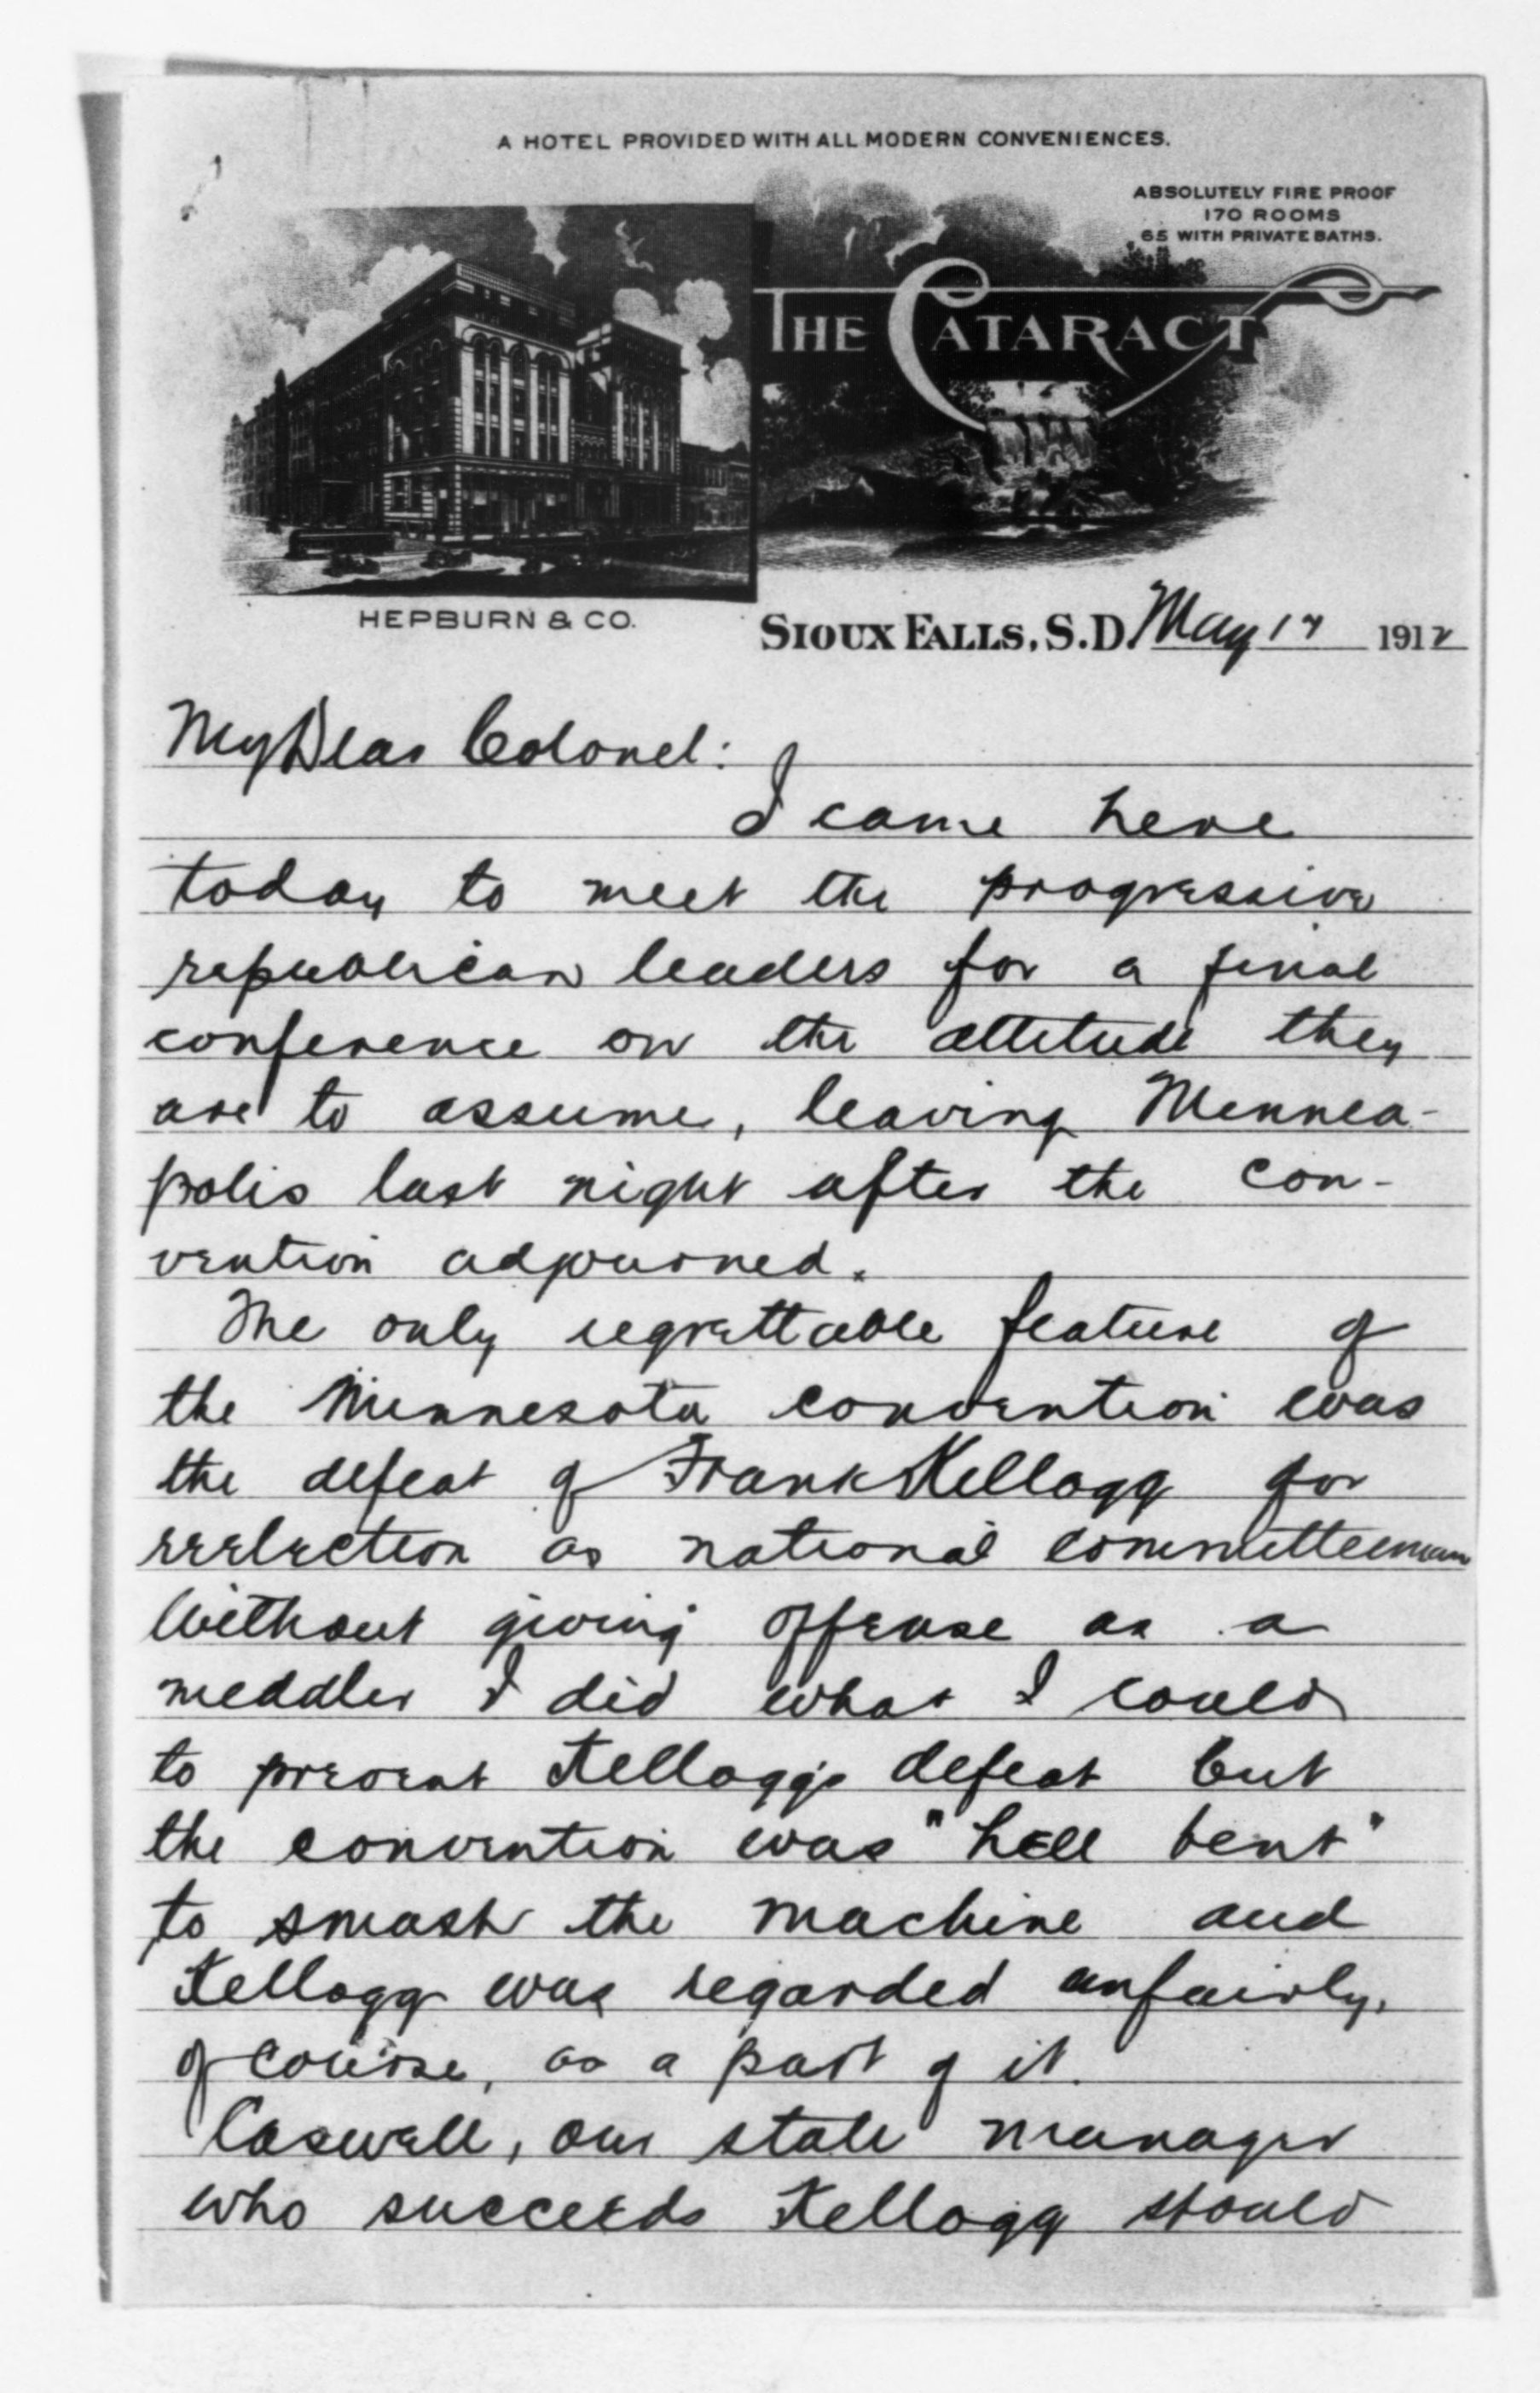 A HOTEL PROVIDED WITH ALL MODERN CONVENIENCES.
ABSOLUTELY FIRE PROOF
170 ROOMS
65 WITH PRIVATE BATHS.
THE CATARACT
HEPBURN & CO.
SIOUX FALLS, S.D. May 17 1912
My Dear Colonel:
I came here
today to meet the progressive
republican leaders for a final
conference on the attitude they
are to assume, leaving Minnea-
polis last night after the con-
vention adjourned.
The only regrettable feature of
the Minnesota convention was
the defeat of Frank Kellogg for
reelection as national committeeman
Without giving offense as a
meddler I did what I could
to prevent Kelloggs defeat but
the convention was "hell bent"
to smash the machine and
Kellogg was regarded unfairly,
of course, as a part of it.
Caswell, our state manager
who succeeds Kellogg should